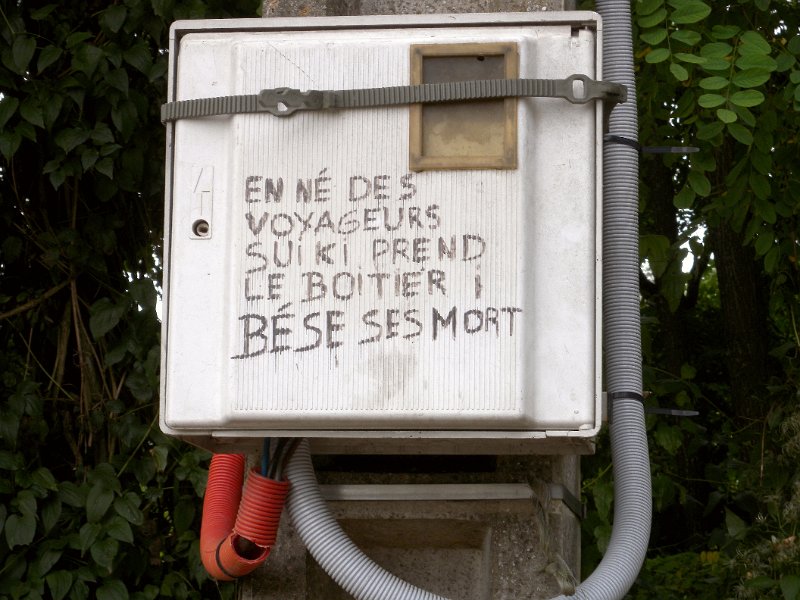 EN NÉ DES
VOYAGEURS
SUIKI PREND
LE BOITIER I
BÉSE SES MORT